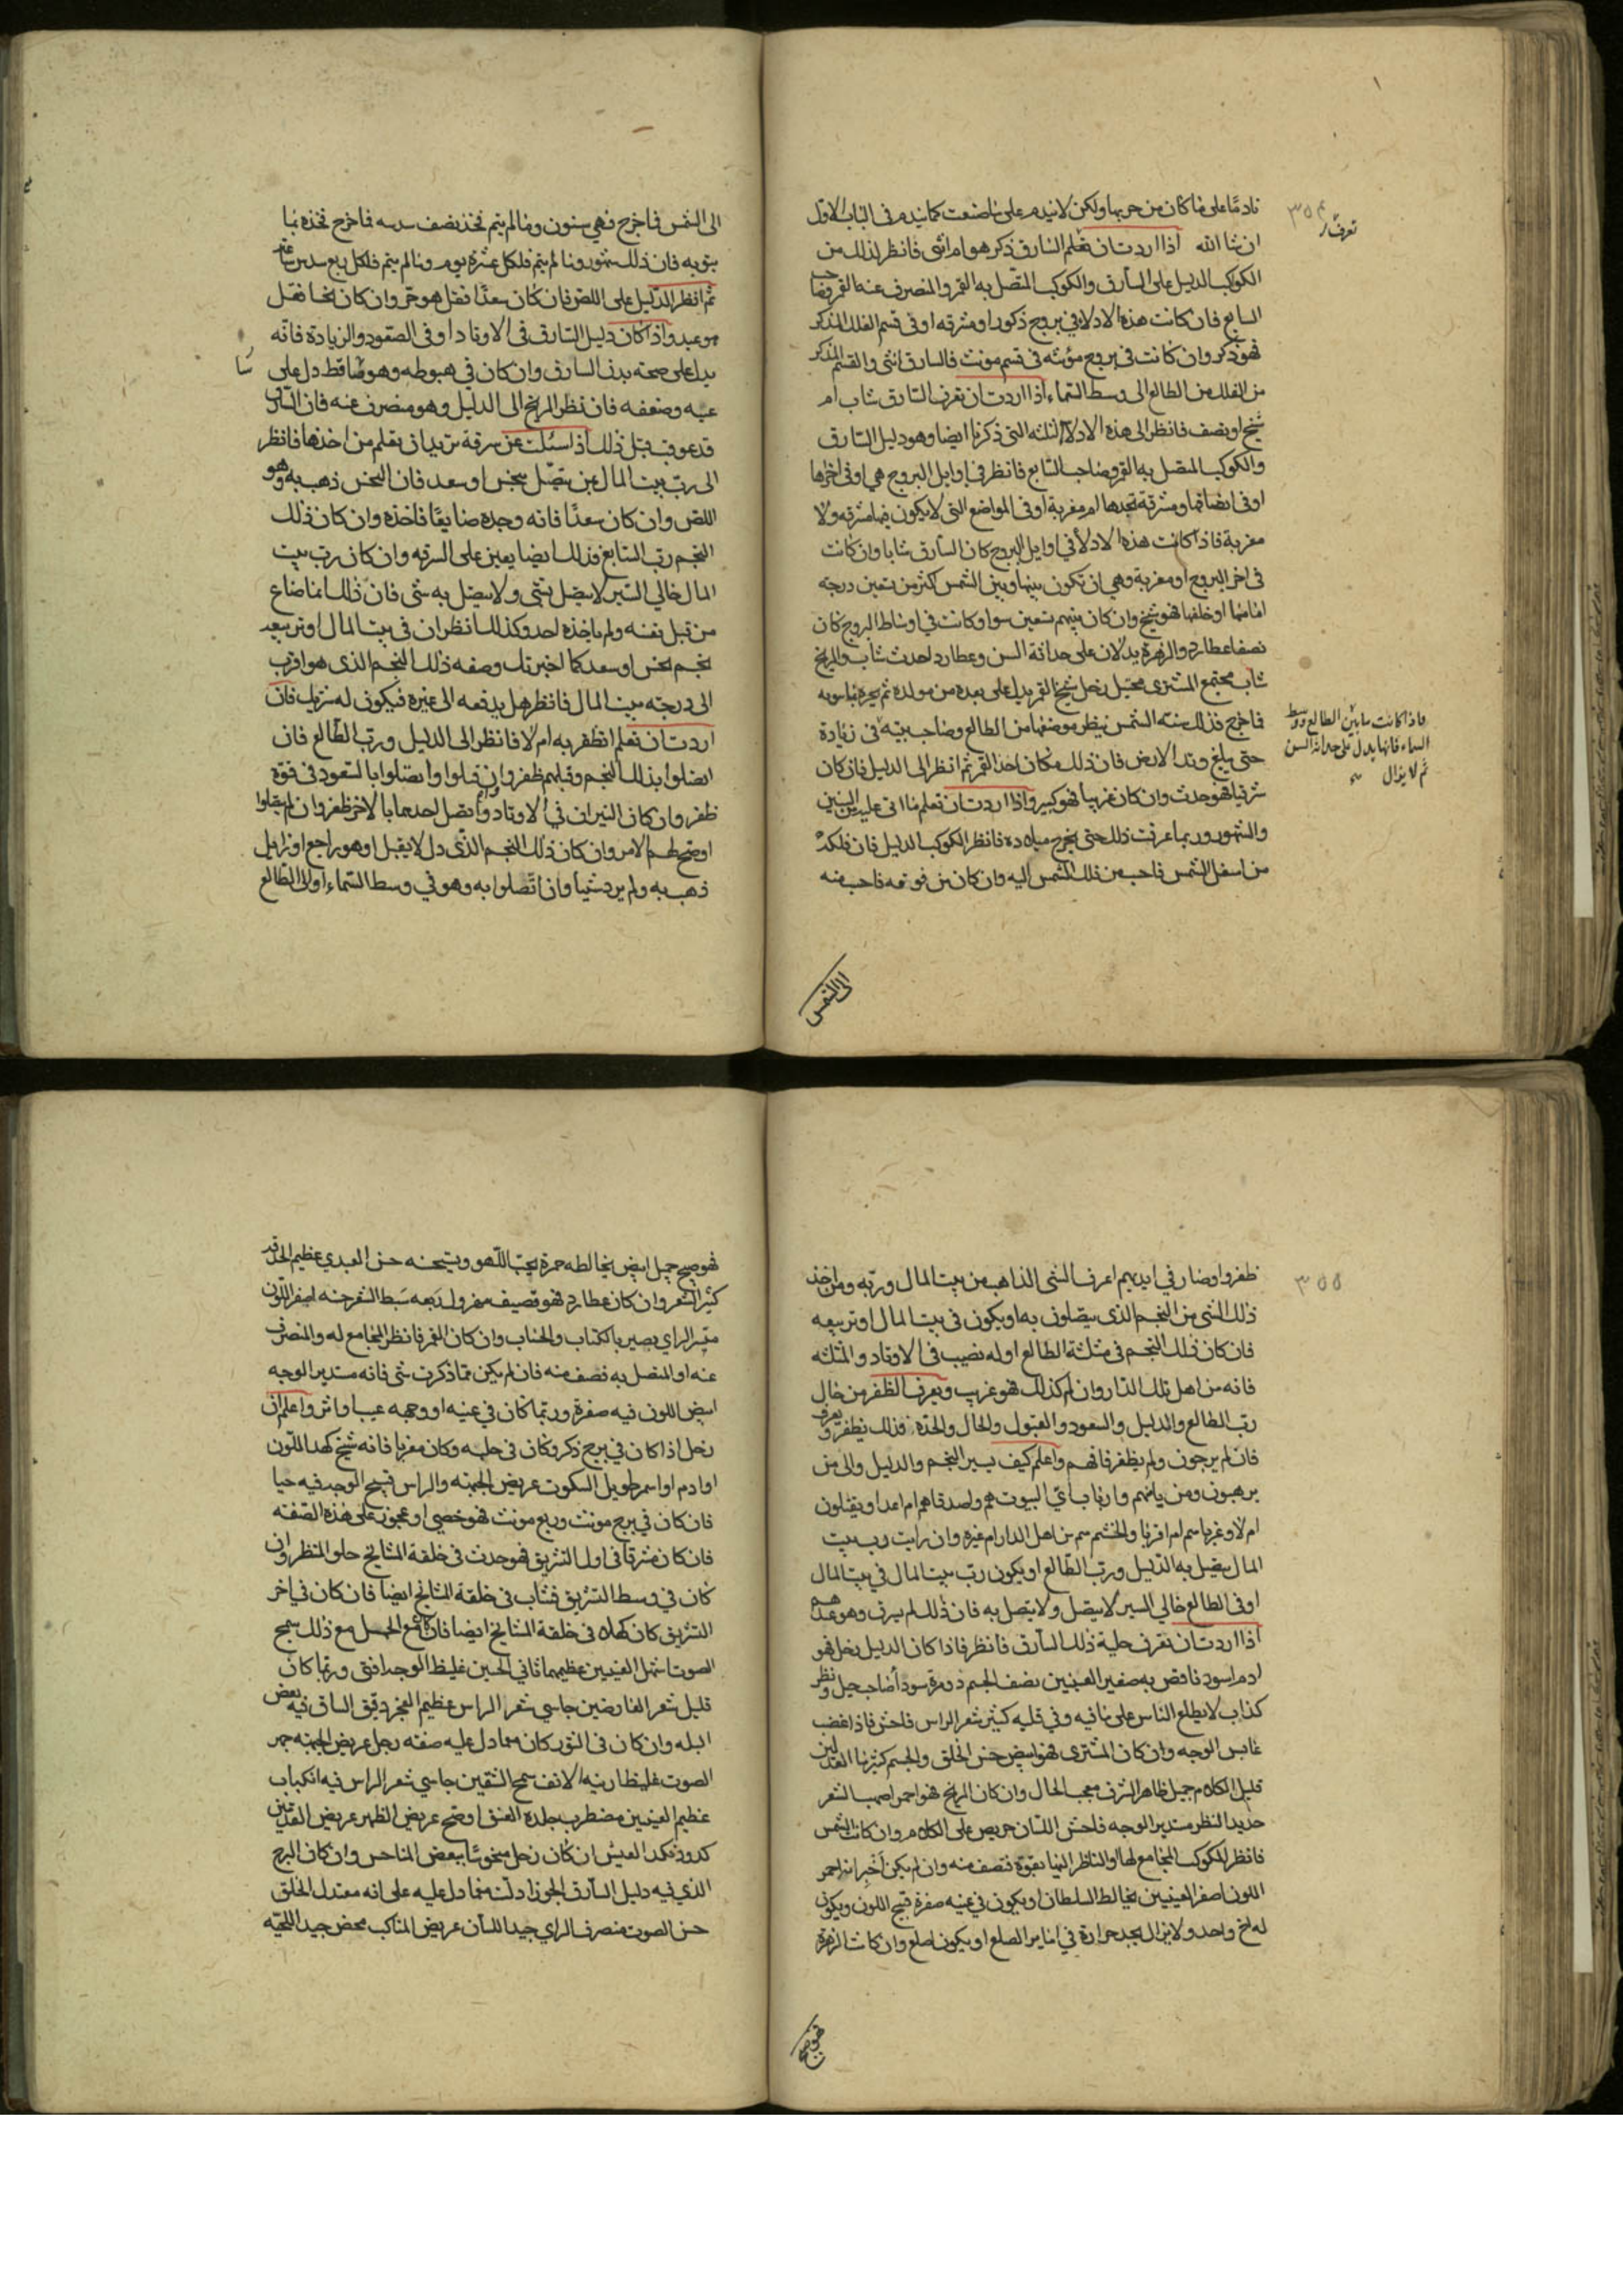 ٣٥٤
تعرف
نادما على ما كان من حربها ولكن لا يندم على ما صنعت كما يندم فى الباب الاول
ان شا الله اذا اردت ان تعلم السارق ذكر هو ام انثى فانظر لذلك من
الكوكب الدليل على السارق والكوكب المتصل به القمر والمنصرف عنه القمر وصاحب
السابع فان كانت هذه الادلا فى بروج ذكور او مشرقه او فى قسم الفلك المذكر
فهو ذكر وان كانت فى بروج مؤنثه فى قسم مونث فالسارق انثى والقسم المذكر
من الفلك من الطالع الى وسط السماء اذا اردت ان تعرف السارق شاب ام
شيخ او نصف فانظر الى هذه الادلا الثلثه التى ذكرنا ايضا وهو دليل السارق
والكوكب المتصل به القمر وصاحب السابع فانظر فى اوايل البروج هي او فى اخرها
او فى انصافها ومشرقة تجدها ام مغربة او فى المواضع التى لا يكون فيها مشرقه ولا
مغربة فاذا كانت هذه الادلا في اوايل البروج كان السارق شابا وان كانت
فى اخر البروج او مغربة وهي ان تكون بينها وبين الشمس اكثر من تسعين درجه
امامها او خلفها فهو شيخ وان كان بينهم تسعين سوا وكانت في اوساط البروج كان
نصفا عطارد والزهرة يدلان على حداثة السن وعطارد احدث شاب والمريخ
شاب مجتمع المشترى مكتهل زحل شيخ القمر يدل على بعده من مولده ثم
فاخرج فذلك سنه الشمس ينظر موضعها من الطالع وصاحب بيته فى زيادة
فاذا كانت ما بين الطالع ووسط
السماء فانها يدل على حداثة السن
ثم لا يزال
حتى يبلغ وتد الارض فان ذلك مكان احد القمر ثم انظر الى الدليل فان كان
شرقيا فهو حدث وان كان غربيا فهو كبير واذا اردت ان تعلم ما اتى عليه من السنين
والشهور وربما عرفت ذلك حتى يخرج ميلاده فانظر الكوكب الدليل فان فلكه
من اسفل الشمس فاحسب من ذلك الشمس اليه وان كان من فوقه فاحسب منه
الى الشمس
الى الشمس فما خرج فهي سنون وما لم يتم فخذ نصف سدسه فما خرج فخذه بما
ينوبه فان ذلك شهور وما لم يتم فلكل عشرة يوم وما لم يتم فلكل ربع سدس ساعه
ثم انظر الدليل على اللص فان كان سعدا فقل هو حر وان كان نحسا فقل
هو عبد واذا كان دليل السارق فى الاوتاد او فى الصعود والزيادة فانه
يدل على صحة بدن السارق وان كان فى هبوطه وهو ساقط دل على
عيبه وضعفه فان نظر المريخ الى الدليل وهو منصرف عنه فان السارق
قد عوقب قبل ذلك اذا سئلت عن سرقة تريد ان تعلم من اخذها فانظر
الى رب بيت المال بمن يتصل بنحس او سعد فان النحس ذهب به وهو
اللص وان كان سعدا فانه وجده ضايعا فاخذه وان كان ذلك
النجم رب السابع فذلك ايضا يعين على السرقه وان كان رب بيت
المال خالي السير لا يتصل بشى ولا يتصل به شى فان ذلك انما ضاع
من قبل نفسه ولم ياخذه احد وكذلك انظر ان فى بيت المال او تربيعه
نجم نحس او سعد كما اخبرتك وصفه ذلك النجم الذى هو اقرب
الى درجة بيت المال فانظر هل يدفعه الى غيره فيكون له شريك فان
اردت ان تعلم انظفر به ام لا فانظر الى الدليل ورب الطالع فان
اتصلوا بذلك النجم وقبلهم ظفروا وان قبلوا واتصلوا بالسعود فى قوة
ظفر وان كان النيران في الاوتاد واتصل احدهما بالاخر ظفر وان لم يقبلوا
اوضح لهم الامر وان كان ذلك النجم الذى دل لا يقبل او هو راجع او زايل
ذهب به ولم يرد شيا وان اتصلوا به وهو في وسط السماء او فى الطالع
٣٥٥
ظفروا وصار في ايديهم اعرف الشى الذاهب من بيت المال وربه ومن اخذ
ذلك الشى من النجم الذى يتصلون به او يكون فى بيت المال او تربيعه
فان كان ذلك النجم فى مثلثة الطالع او له نصيب فى الاوتاد والمثلثه
فانه من اهل تلك الدار وان لم كذلك فهو غريب ويعرف الظفر من حال
رب الطالع والدليل والسعود والقبول والحال والحدة فذلك يظفر ويعرف
فان لم يرجون ولم يظفر فاتهم واعلم كيف يسير النجم والدليل والى من
يرهبون ومن ياتيهم وارباب اي البيوت هم واصدقا هم ام اعدا ويقبلون
ام لا وغربا هم ام اقربا والخشم هم من اهل الدار ام غيره وان رايت رب بيت
المال يتصل به الدليل ورب الطالع او يكون رب بيت المال في بيت المال
او فى الطالع خالي السير لا يتصل ولا يتصل به فان ذلك لم يسرق وهو عندهم
اذا اردت ان تعرف حلية ذلك السارق فانظر فاذا كان الدليل زحل فهو
ادم اسود فاقض به صغير العينين نصف الجسم ذو مرة سودا صاحب حيل ونظر
كذاب لا يطلع الناس على ما فيه وفي قلبه كثير شعر الراس فاحش فاذا غضب
عابس الوجه وان كان المشترى فهو ابيض حسن الخلق والجسم كثيرها
قليل الكلام جميل ظاهر الشرف معجب الحال وان كان المريخ فهو احمر اصهب الشعر
حديد النظر مستدير الوجه فاحش اللسان حريص على الكلام وان كانت الشمس
فانظر الكوكب المجامع لها والناظر اليها بقوة فتصف منه وان لم يكن اخبر انه احمر
اللون اصفر العينين يخالط السلطان او يكون في عينه صفرة قبيح اللون ويكون
له اخ واحد ولا يزال يجد حرارة في اما من الصلع او يكون اصلع وان كانت الزهرة
فهو صبيح
فهو صبيح جميل ابيض يخالطه حمرة يحب اللهو ويشتهيه حسن عظيم الحدقه
كثير الشعر وان كان عطارد فهو قصيف سبط الشعر حسنه اصفر اللون
متغير الراي بصير بالكتاب والحساب وان كان القمر فانظر المجامع له والمنصرف
عنه او المتصل به فصف منه فان لم يكن مما ذكرت شى فانه مستدير الوجه
ابيض اللون فيه صفرة وربما كان في عينه او وجهه عيب او اثر واعلم ان
زحل اذا كان في برج ذكر وكان فى حلبه وكان مغربا فانه شيخ كهد اللون
او ادم او اسمر طويل السكوت عريض الجبهه والراس قبيح الوجه فيه حيا
فان كان في برج مونث وربع مونث فهو خصي او عجوز على هذه الصفه
فان كان مشرقا فى اول التشريق فهو حدث فى خلقة المشايخ حلو المنظر وان
كان في وسط التشريق فشاب فى خلقة المشايخ ايضا فان كان في اخر
التشريق كان كهلا فى خلقة المشايخ ايضا فان كان مع الحمل مع ذلك سمج
الصوت اشهل العينين عظيمهما ناتي الجبين غليظ الوجه افنى وربما كان
قليل شعر العارضين جاسي شعر الراس عظيم العجز دقيق الساق فيه بعض
البله وان كان فى الثور كان مما دل عليه صفه رجل عريض الجبهه جهر
الصوت غليظ ارنبه الانف سمج الشفتين جاسي شعر الراس فيه انكباب
عظيم العينين مضطرب جلدة العنق اوضح عريض الظهر عريض القدمين
كدود نكد العيش ان كان زحل منحوسا ببعض المناحس وان كان البرج
الذي فيه دليل السارق الجوزا دلت مما دل عليه على انه معتدل الخلق
حسن الصوت منصرف الراي جيد اللسان عريض المناكب محض جيد اللحيه